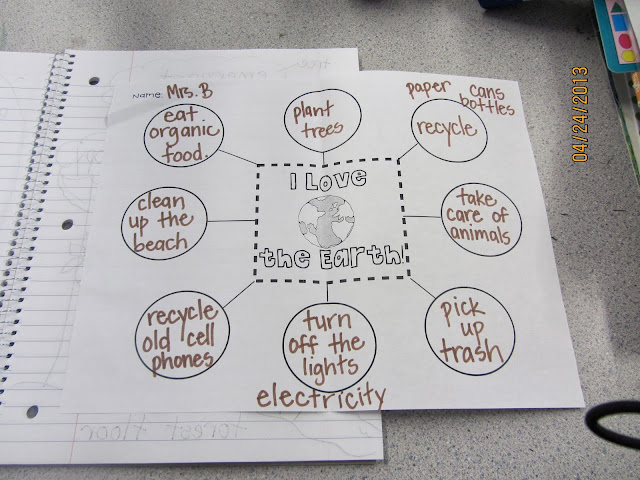 Name: Mrs. B
paper cans
bottles
eat
organic
food.
plant
trees
recycle
I Love
the Earth!
clean
up the
beach
take
care of
animals
recycle
old cell
phones
turn
off the
lights
electricity
pick
up
trash
04/24/2013